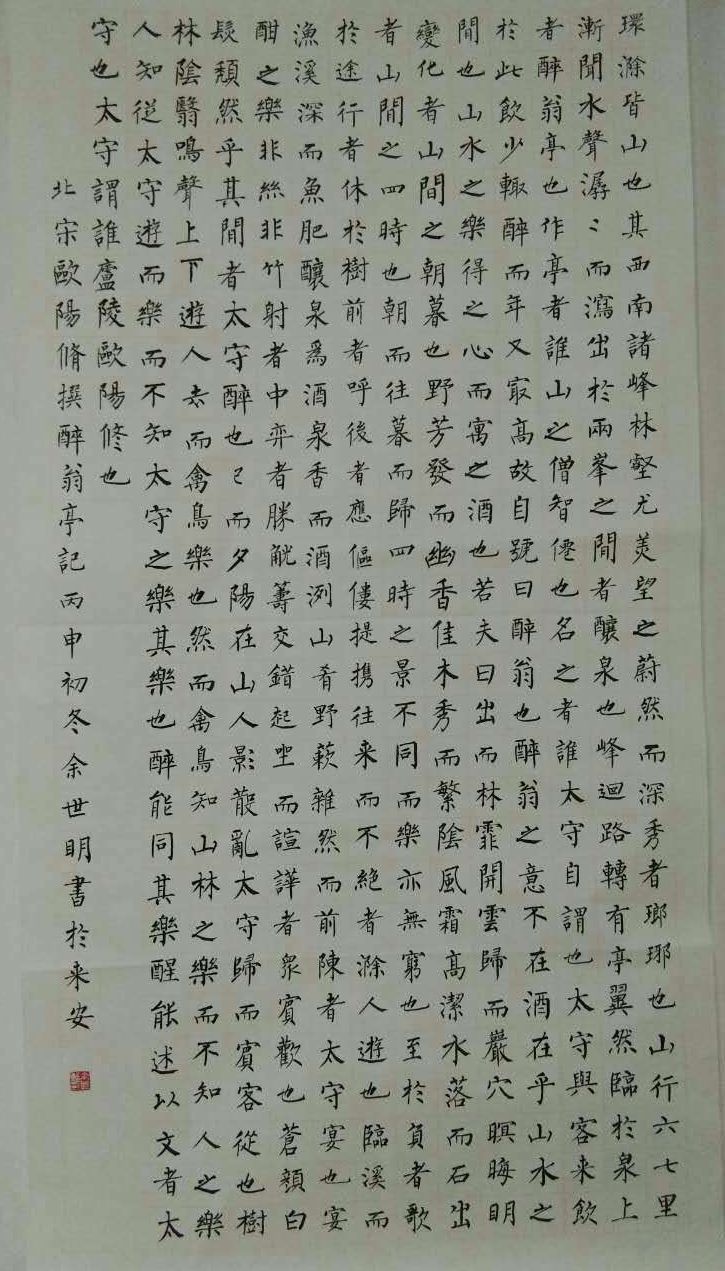 環滁皆山也其西南諸峰林壑尤美望之蔚然而深秀者瑯琊也山行六七里
漸聞水聲潺〻而瀉出於兩峯之間者釀泉也峰迴路轉有亭翼然臨於泉上
者醉翁亭也作亭者誰山之僧智僊也名之者誰太守自謂也太守與客来飲
於此飲少輒醉而年又冣高故自號曰醉翁也醉翁之意不在酒在乎山水之
間也山水之樂得之心而寓之酒也若夫日出而林霏開雲歸而巖穴暝晦明
變化者山間之朝暮也野芳發而幽香佳木秀而繁陰風霜高潔水落而石出
者山間之四時也朝而往暮而歸四時之景不同而樂亦無窮也至於負者歌
於途行者休於樹前者呼後者應傴僂提携往来而不絶者滁人遊也臨溪而
漁溪深而魚肥釀泉爲酒泉香而酒洌山肴野蔌雜然而前陳者太守宴也宴
酣之樂非絲非竹射者中弈者勝觥籌交錯起坐而諠譁者衆賓歡也蒼顔白
髮頽然乎其間者太守醉也已而夕陽在山人影散亂太守歸而賓客從也樹
林陰翳鳴聲上下遊人去而禽鳥樂也然而禽鳥知山林之樂而不知人之樂
人知從太守遊而樂而不知太守之樂其樂也醉能同其樂醒能述以文者太
守也太守謂誰廬陵歐陽修也
北宋歐陽脩撰醉翁亭記丙申初冬余世明書於来安